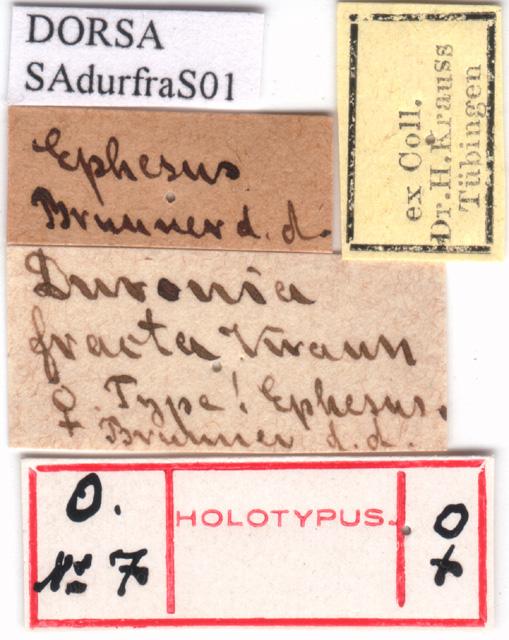 DORSA
SAdurfraS01
ex Coll.
Dr. H. Krauss
Tübingen
Ephesus
Brunner d. d.
Duronia
fracta Krauss
♀. Type! Ephesus.
Brunner d. d.
O.
№ 7
HOLOTYPUS.
♀